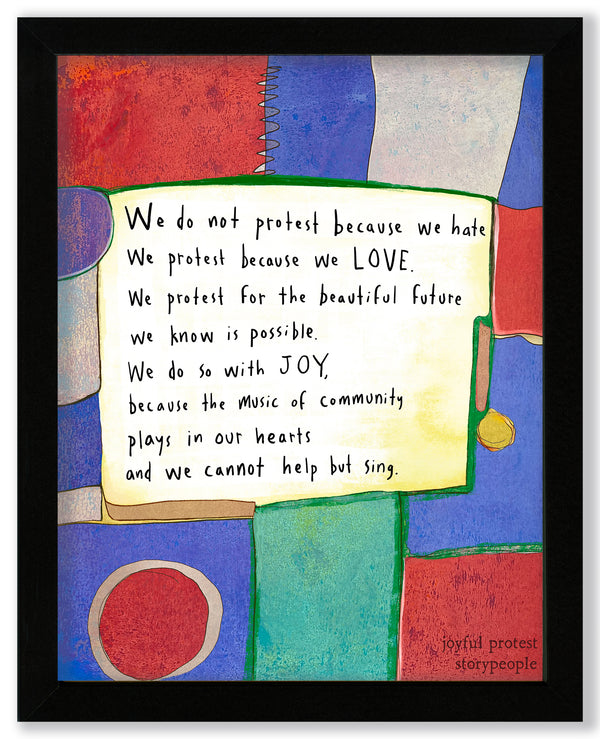 We do not protest because we hate
We protest because we LOVE.
We protest for the beautiful future
we know is possible.
We do so with JOY,
because the music of community
plays in our hearts
and we cannot help but sing.
joyful protest
storypeople